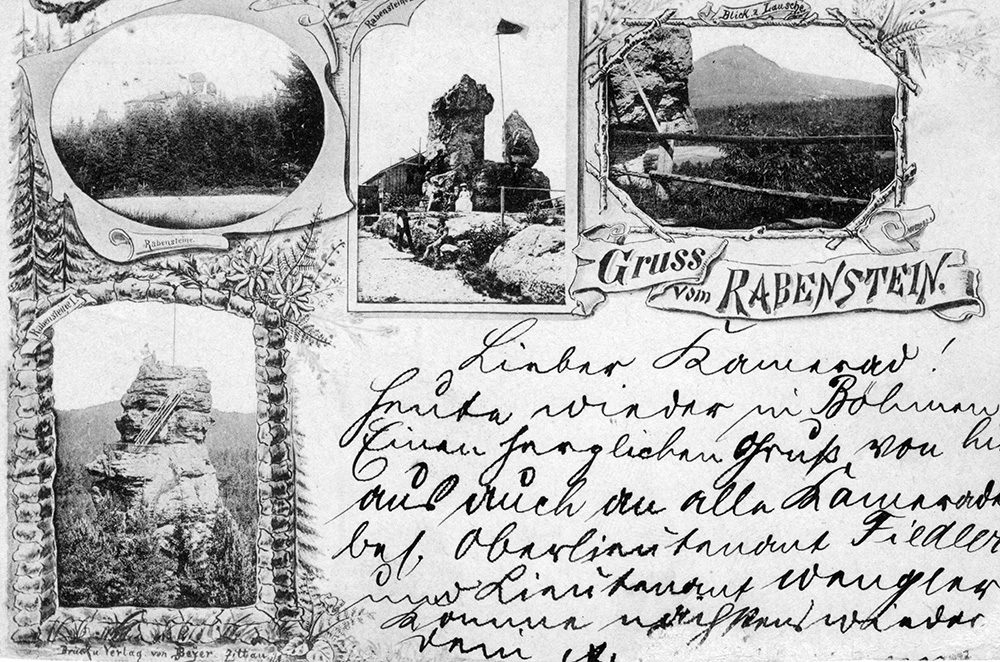 Rabensteine.
Blick z. Lausche.
Rabensteine.
Gruss
vom RABENSTEIN.
Rabensteine I.
Lieber Kamerad!
Heute wieder in Böhmen
Einen herzlichen Gruß, von hi
aus auch an alle Kamerade
bes. Oberlieutenant Fiedler
und Lieutenant Wengler
Komme nächstens wieder
Dein
Druck u. Verlag von Beyer Zittau